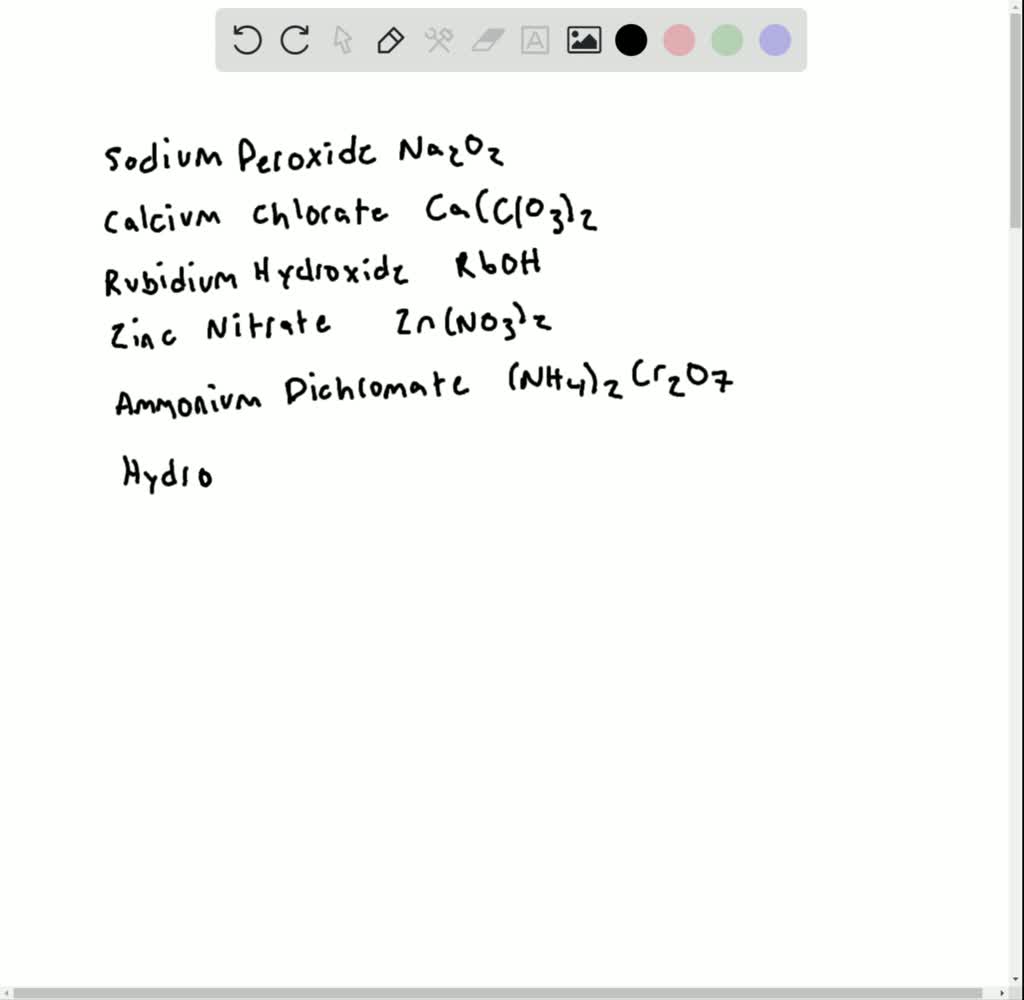 A
Sodium Peroxide Na₂O₂
Calcium Chlorate Ca(ClO₃)₂
Rubidium Hydroxide RbOH
Zinc Nitrate Zn(NO₃)₂
Ammonium Dichromate (NH₄)₂Cr₂O₇
Hydro